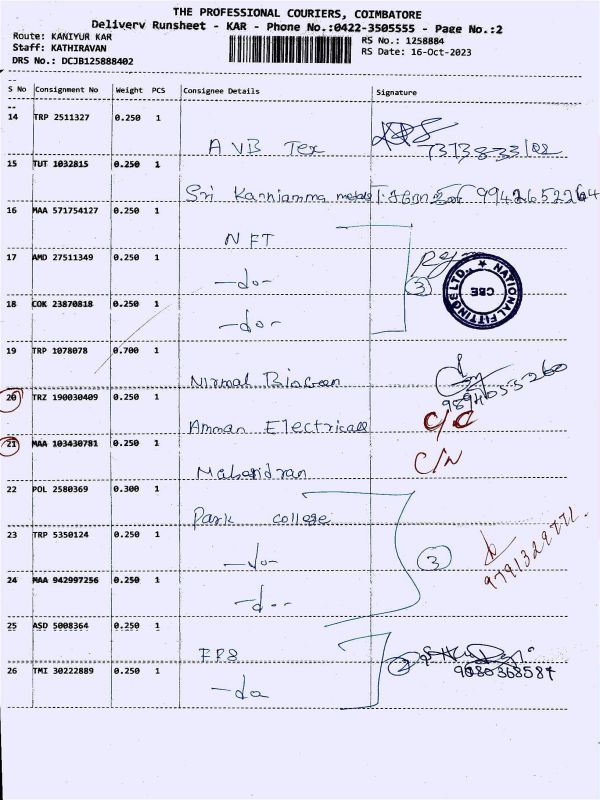 THE PROFESSIONAL COURIERS, COIMBATORE
Delivery Runsheet - KAR - Phone No.:0422-3505555 - Page No.:2
Route: KANIYUR KAR
RS No.: 1258884
Staff: KATHIRAVAN
RS Date: 16-Oct-2023
DRS No.: DCJB125888402
S No Consignment No Weight PCS Consignee Details Signature
14 TRP 2511327 0.250 1
AVB Tex
15 TUT 1032815 0.250 1
Sri Kanniamma metals 9942652264
16 MAA 571754127 0.250 1
NFT
17 AMD 27511349 0.250 1
-do- 3
NATIONAL FITTINGS LTD., ★ CBE
18 COK 23870818 0.250 1
-do-
19 TRP 1078078 0.700 1
Nirmal
20 TRZ 190030409 0.250 1
Amman Electricals
21 MAA 103430781 0.250 1
C/N
22 POL 2580369 0.300 1
Park college
23 TRP 5350124 0.250 1
-do- 3 9791329772
24 MAA 942997256 0.250 1
-do-
25 ASD 5008364 0.250 1
2
26 TMI 30222889 0.250 1
-do 9080368584